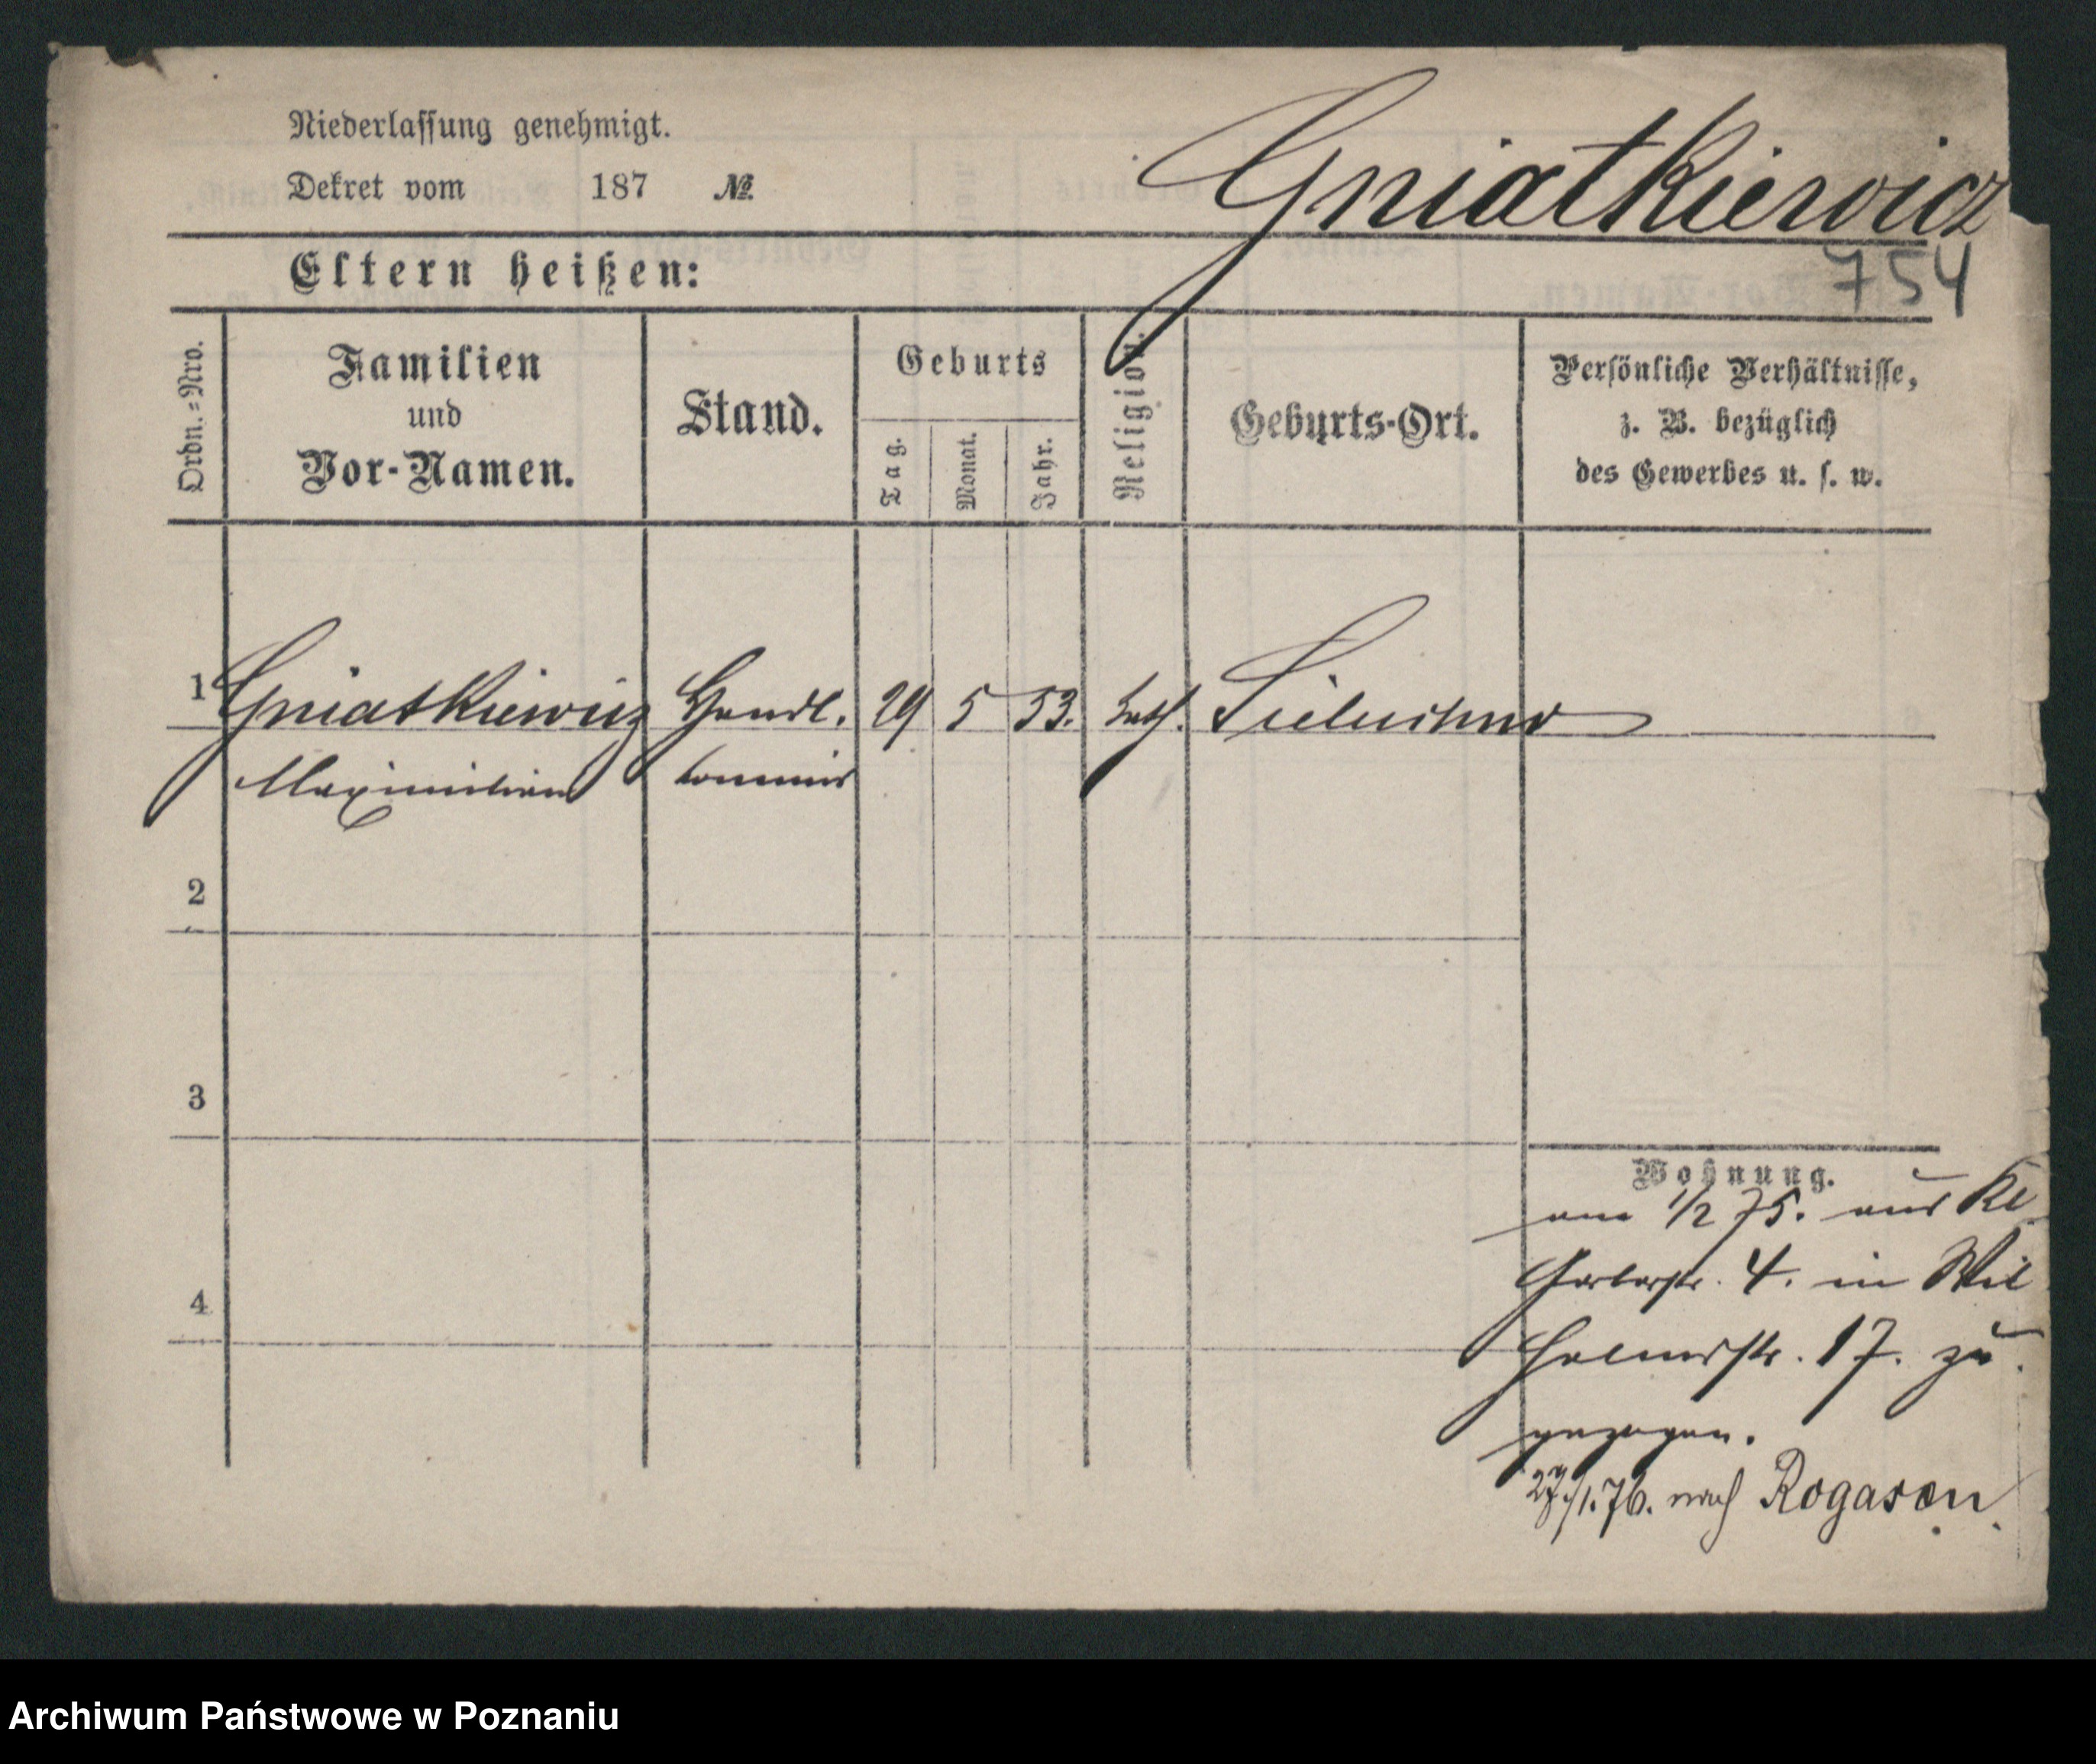 Niederlassung genehmigt.
Dekret vom 187 №
Gniatkiewicz
754
Eltern heißen:
Ordn.=Nro.
Familien
und
Vor-Namen.
Stand.
Geburts
Tag.
Monat.
Jahr.
Religion.
Geburts-Ort.
Persönliche Verhältnisse,
z. B. bezüglich
des Gewerbes u. s. w.
1 Gniatkiewicz Handl. 29 5 53. kath.
Maximilian commis
2
3
4
Wohnung.
am 1/2 75. aus Kl.
Gerberstr. 4. in Wil
helmsstr. 17. zu
gezogen.
27/1.76. nach Rogasen.
Archiwum Państwowe w Poznaniu